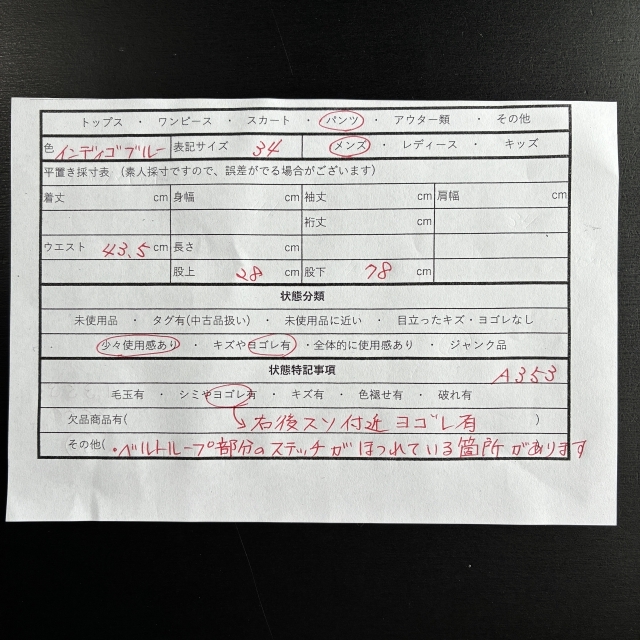 トップス ・ ワンピース ・ スカート ・ パンツ ・ アウター類 ・ その他
色 インディゴブルー 表記サイズ 34 メンズ ・ レディース ・ キッズ
平置き採寸表 (素人採寸ですので、誤差がでる場合がございます)
着丈 cm 身幅 cm 袖丈 cm 肩幅 cm
裄丈 cm
ウエスト 43.5 cm 長さ cm
股上 28 cm 股下 78 cm
状態分類
未使用品 ・ タグ有(中古品扱い) ・ 未使用品に近い ・ 目立ったキズ・ヨゴレなし
少々使用感あり ・ キズやヨゴレ有 ・全体的に使用感あり ・ ジャンク品
状態特記事項 A353
毛玉有 ・ シミやヨゴレ有 ・ キズ有 ・ 色褪せ有 ・ 破れ有
欠品商品有( 右後スソ付近 ヨゴレ有 )
その他( ・ベルトループ部分のステッチがほつれている箇所があります